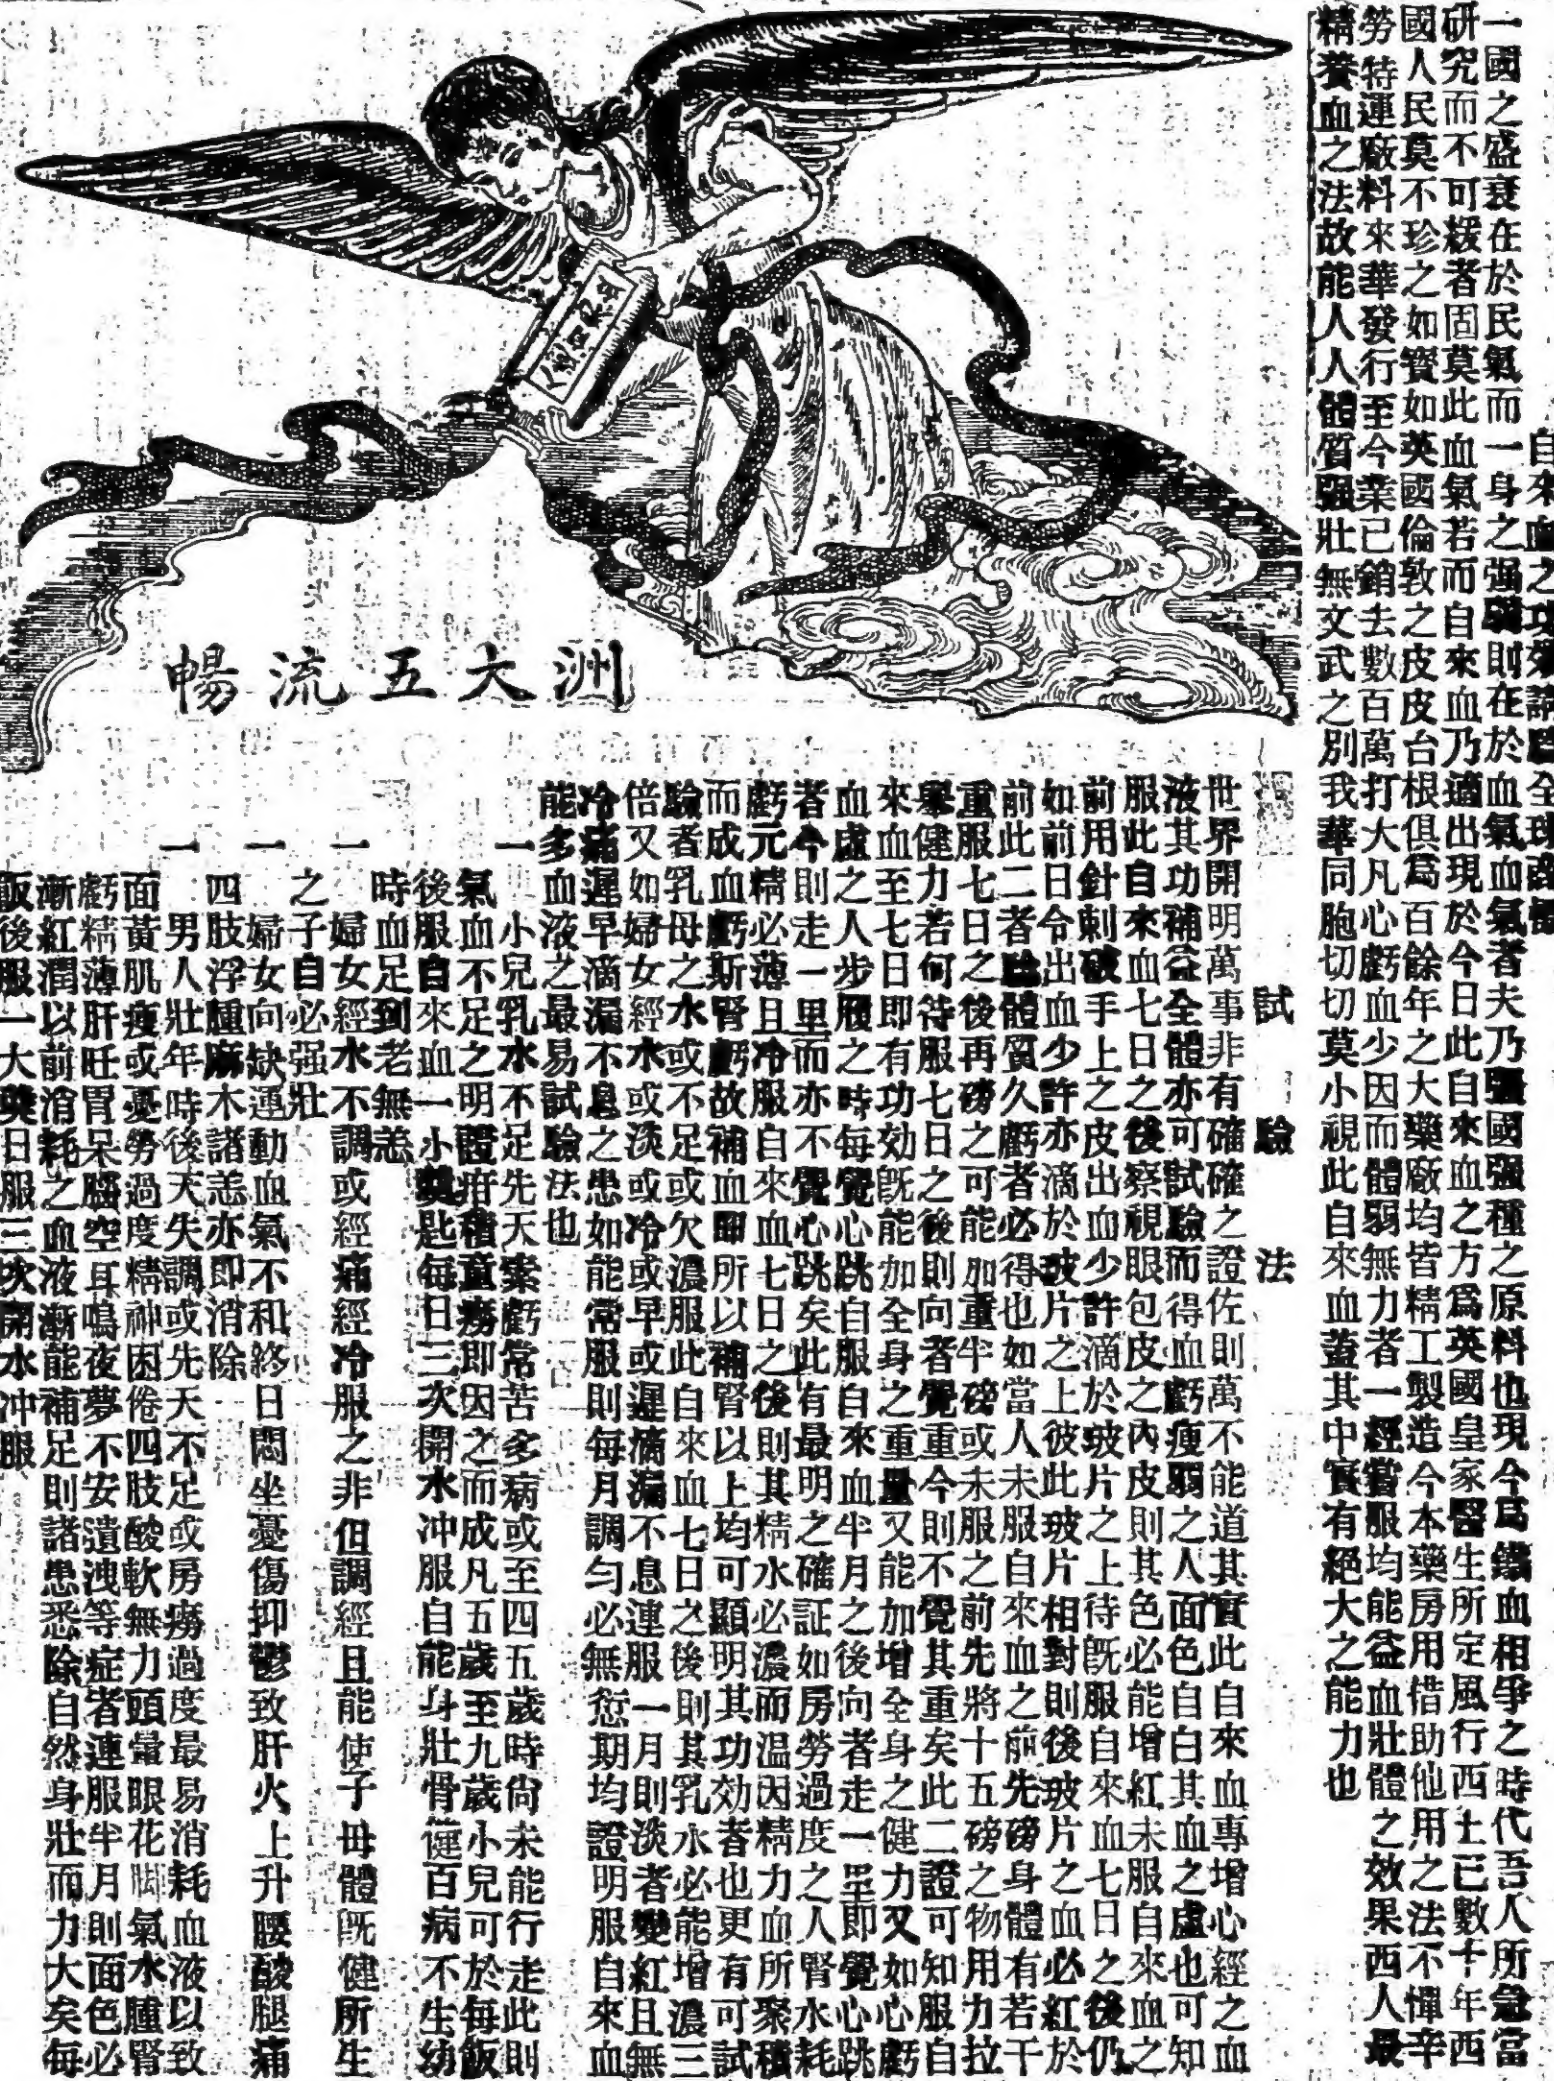 自來血之功效請驗全球
一國之盛衰在於民氣而一身之强弱則在於血氣血氣者夫乃强國强種之原料也現今爲鐵血相爭之時代吾人所急當
研究而不可緩者固莫此血氣若而自來血乃適出現於今日此自來血之方爲英國皇家醫生所定風行西土已數十年西
國人民莫不珍之如寶如英國倫敦之皮皮台根俱爲百餘年之大藥廠均皆精工製造今本藥房用借助他用之法不憚辛
勞特運廠料來華發行至今業已銷去數百萬打大凡心虧血少因而體弱無力者一經嘗服均能益血壯體之效果西人最
精養血之法故能人人體質强壯無文武之別我華同胞切切莫小視此自來血蓋其中實有絕大之能力也
洲大五流暢
試驗法
世界開明萬事非有確確之證佐則萬不能道其實此自來血專增心經之血
液其功補益全體亦可試驗而得血虧瘦弱之人面色自白其血之虛也可知
服此自來血七日之後察視眼包皮之內皮則其色必能增紅未服自來血之
前用針刺破手上之皮出血少許滴於玻片之上待既服自來血七日之後仍
如前日令出血少許亦滴於玻片之上彼此玻片相對則後玻片之血必紅於
前此二者驗體質久虧者必得也如當人未服自來血之前先磅身體有若干
重服七日之後再磅之可能加重半磅或未服之前先將十五磅之物用力拉
舉健力若何待服七日之後則向者覺重今則不覺其重矣此二證可知服自
來血至七日即有功効既能加全身之重量又能加增全身之健力又如心虧
血虛之人步履之時每覺心跳自服自來血半月之後向者走一里即覺心跳
者今則走一里而亦不覺心跳矣此有最明之確証如房勞過度之人腎水耗
虧元精必薄且冷服自來血七日之後則其精水必濃而温因精力血所聚積
而成血虧斯腎虧故補血即所以補腎以上均可顯明其功効者也更有可試
驗者乳母之水或不足或欠濃服此自來血七日之後則其乳水必能增濃三
倍又如婦女經水或淡或冷或早或遲滴漏不息連服一月則淡者變紅且無
冷痛遲早滴漏不息之患如能常服則每月調勻必無愆期均證明服自來血
能多血液之最易試驗法也
一小兒乳水不足先天素虧常苦多病或至四五歲時尙未能行走此則
氣血不足之明證疳積童癆即因之而成凡五歲至九歲小兒可於每飯
後服自來血一小羹匙每日三次開水冲服自能身壯骨健百病不生幼
時血足到老無恙
一婦女經水不調或經痛經冷服之非但調經且能使子母體既健所生
之子自必强壯
一婦女向缺運動血氣不和終日悶坐憂傷抑鬱致肝火上升腰酸腿痛
四肢浮腫麻木諸恙亦即消除
一男人壯年時後天失調或先天不足或房癆過度最易消耗血液以致
面黃肌瘦或憂勞過度精神困倦四肢酸軟無力頭暈眼花脚氣水腫腎
虧精薄肝旺胃呆腦空耳鳴夜夢不安遺洩等症者連服半月則面色必
漸紅潤以前消耗之血液漸能補足則諸患悉除自然身壯而力大矣每
飯後服一大羹日服三次開水冲服